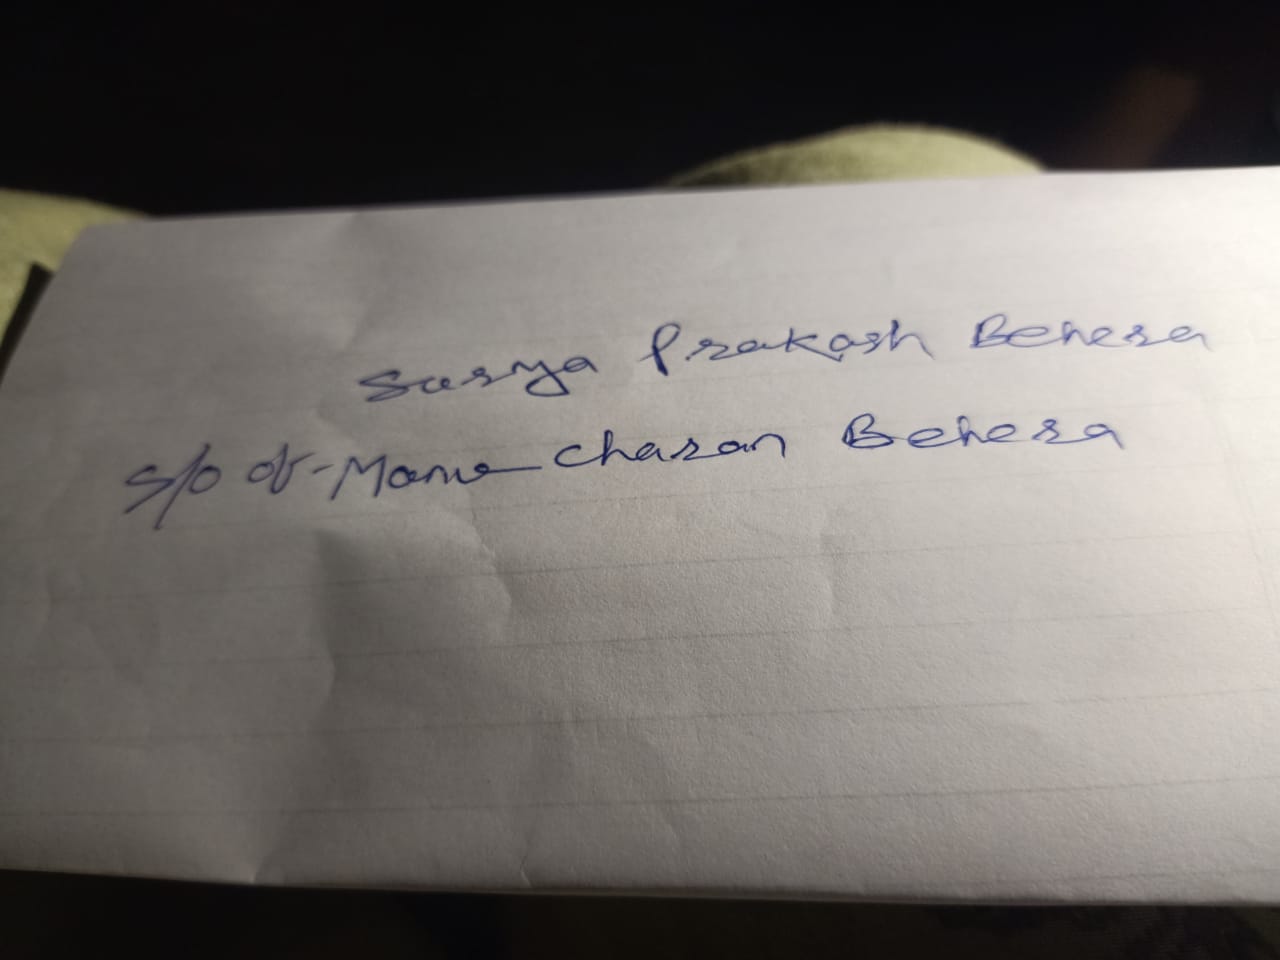 Surya Prakash Behera
S/O of - Manu charan Behera